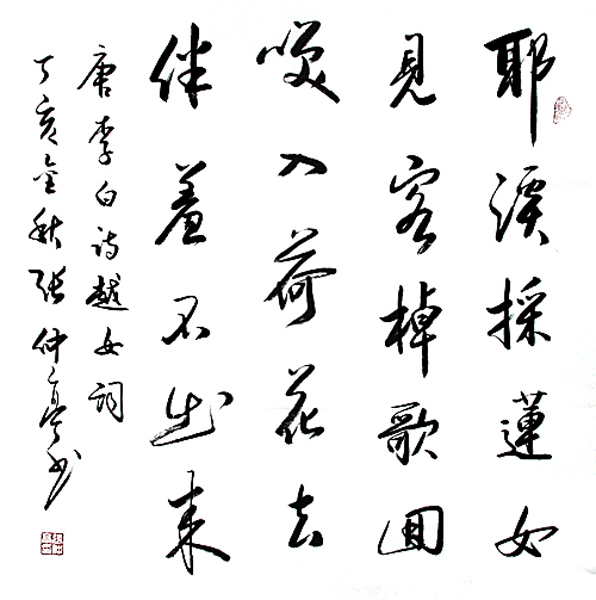 耶溪採蓮女
見客棹歌囬
笑入荷花去
佯羞不出来
唐李白诗越女词
丁亥金秋张仲亭书